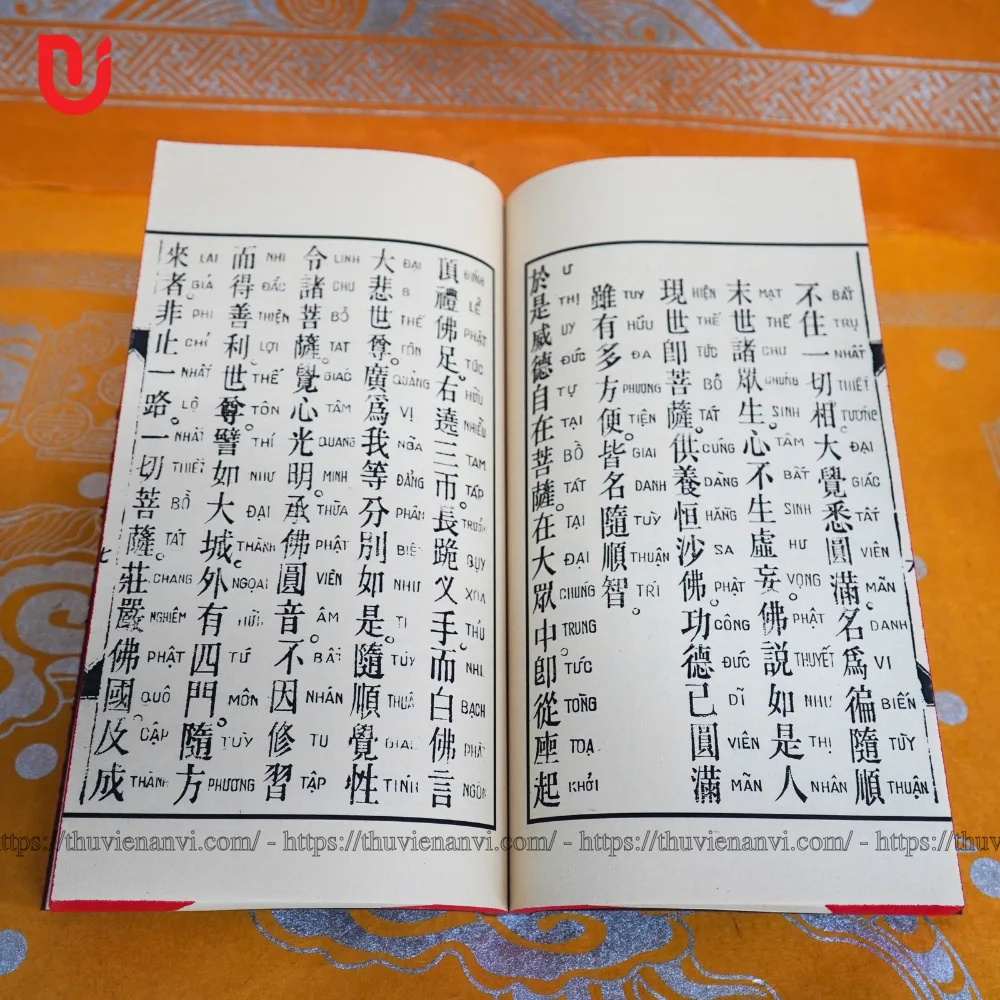 不住一切相大覺悉圓滿。名爲徧隨順
BẤT TRỤ NHẤT THIẾT TƯỚNG ĐẠI GIÁC TẤT VIÊN MÃN DANH VI BIẾN TÙY THUẬN
末世諸眾生。心不生虛妄。佛說如是人
MẠT THẾ CHƯ CHÚNG SINH TÂM BẤT SINH HƯ VỌNG PHẬT THUYẾT NHƯ THỊ NHÂN
現世卽菩薩。供養恒沙佛。功德已圓滿
HIỆN THẾ TỨC BỒ TÁT CÚNG DÀNG HẰNG SA PHẬT CÔNG ĐỨC DĨ VIÊN MÃN
雖有多方便。皆名隨順智。
TUY HỮU ĐA PHƯƠNG TIỆN GIAI DANH TÙY THUẬN TRÍ
於是威德自在菩薩。在大眾中。卽從座起
Ư THỊ UY ĐỨC TỰ TẠI BỒ TÁT TẠI ĐẠI CHUNG TRUNG TỨC TÒNG TOẠ KHỞI
頂禮佛足。右遶三帀。長跪叉手。而白佛言
ĐỈNH LỄ PHẬT TÚC HỮU NHIỄU TAM TẤP QUỴ XOA THỦ NHI BẠCH PHẬT NGÔN
大悲世尊。廣爲我等分別如是。隨順覺性
ĐẠI BI THẾ TÔN QUẢNG VỊ NGÃ ĐẲNG PHÂN BIỆT NHƯ TÙY TÍNH
令諸菩薩。覺心光明。承佛圓音。不因修習
LINH CHƯ BỒ TAT GIAC TÂM QUANG MINH THỪA PHẬT VIÊN ÂM BẤT NHÂN TU TẬP
而得善利。世尊。譬如大城。外有四門。隨方
NHI ĐẮC THIỆN LỢI THẾ TÔN THÍ NHƯ ĐẠI THÀNH NGOẠI HỮU TỨ MÔN TUỲ PHƯƠNG
來者。非止一路。一切菩薩。莊嚴佛國。及成
LAI GIẢ PHI CHỈ NHẤT LỘ NHẤT THIẾT BỒ TÁT CHANG NGHIÊM PHẬT QUÔ CẬP THÀNH
七
https://thuvienanvi.com/ - https://thuvienanvi.com/ - https://thuvienanvi.com/